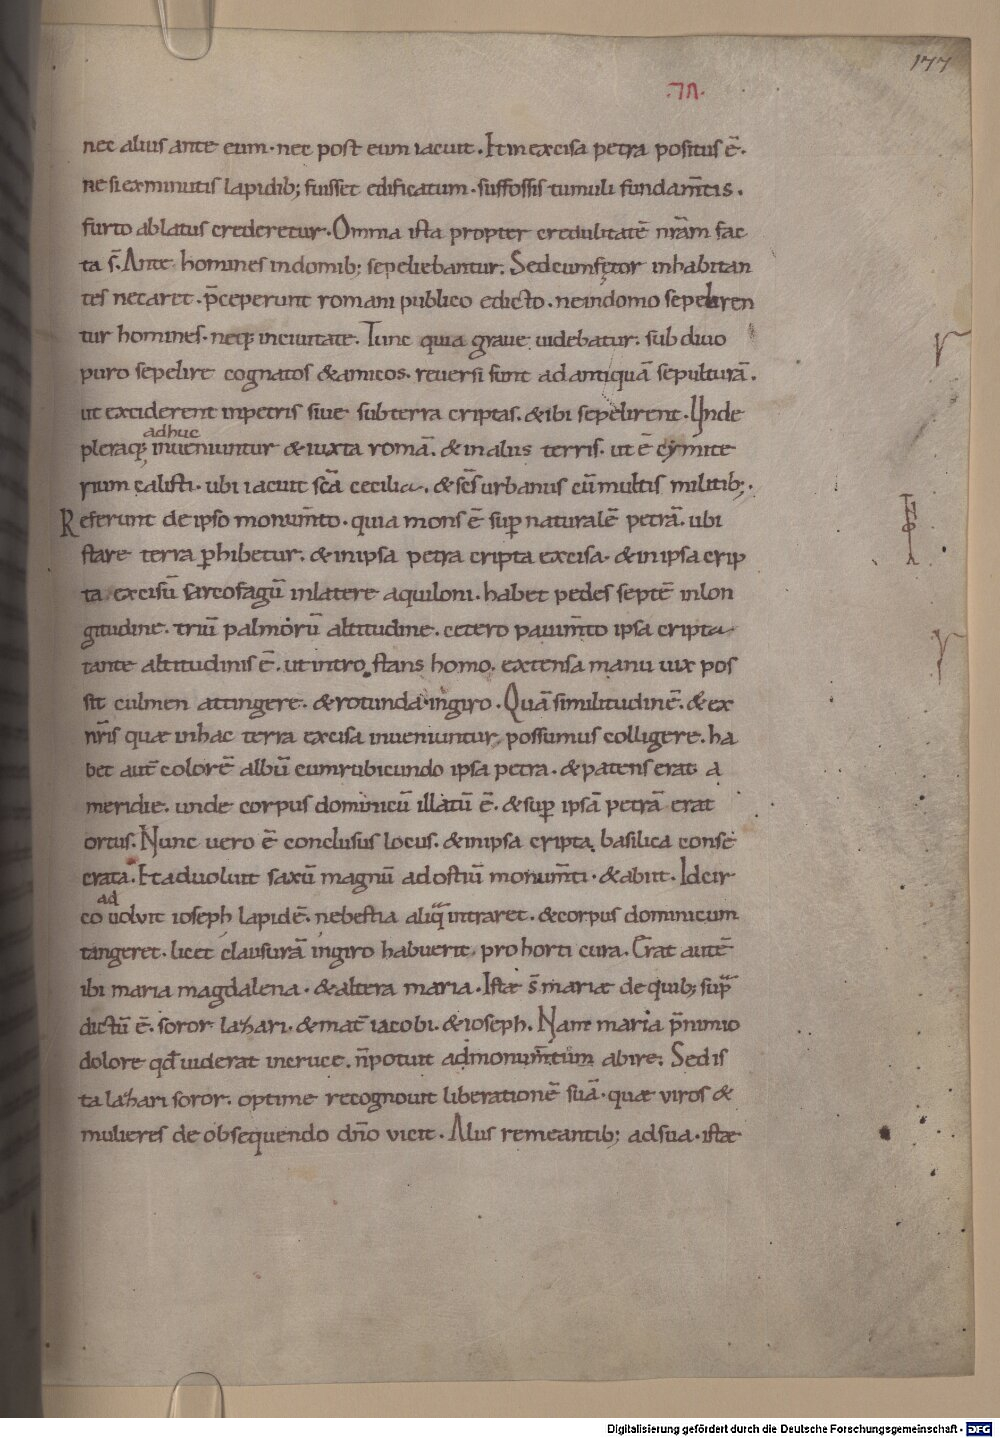 177
.VII.
nec alius ante eum. nec post eum iacuit. Et in excisa petra positus ē.
ne si ex minutis lapidib; fuisset edificatum. suffossis tumuli fundam̄tis.
furto ablatus crederetur. Omnia ista propter credulitatē nr̄am fac
ta s̄. Ante homines in domib; sepeliebantur. Sed cum fętor inhabitan
tes necaret. p̄ceperunt romani publico edicto. ne in domo sepeliren
tur homines. neq; in ciuitate. Tunc quia graue uidebatur. sub diuo
puro sepelire cognatos & amicos. reuersi sunt ad antiquā sepulturā.
ut exciderent in petris siue sub terra criptas. & ibi sepelirent. Unde
adhuc
pleraq; inueniuntur & iuxta romā. & in aliis terris. ut ē cymite
rium calisti. ubi iacuit scā cecilia. & scs̄ urbanus cū multis militib;.
Referunt de ipso monum̄to. quia mons ē sup naturalē petrā. ubi
stare terra phibetur. & in ipsa petra cripta excisa. & in ipsa crip
ta excisū sarcofagū in latere aquiloni. habet pedes septē in lon
gitudine. triū palmorū altitudine. cetero pauim̄to ipsa cripta
tante altitudinis ē. ut intro stans homo. extensa manu uix pos
sit culmen attingere. & rotunda in giro. Quā similitudinē. & ex
nr̄is quæ in hac terra excisa inueniuntur possumus colligere. ha
bet aut̄ colorē albū cum rubicundo ipsa petra. & patens erat a
meridie. unde corpus dominicū illatū ē. & sup ipsā petrā erat
ortus. Nunc uero ē conclusus locus. & in ipsa cripta basilica conse
crata. Et aduoluit saxū magnū ad ostiū monum̄ti. & abiit. Idcir
ad
co uoluit ioseph lapidē. ne bestia aliq̄ intraret. & corpus dominicum
tangeret. licet clausurā in giro habuerit pro horti cura. Erat autē
ibi maria magdalena. & altera maria. Istæ s̄ mariæ de quib; sup̄
dictū ē. soror lazari. & mat̄ iacobi. & ioseph. Nam maria p̄ nimio
dolore qd̄ uiderat in cruce. n̄ potuit ad monum̄tum abire. Sed is
ta lazari soror. optime recognouit liberationē suā. quæ viros &
mulieres de obsequendo dn̄o vicit. Aliis remeantib; ad sua. istæ
Digitalisierung gefördert durch die Deutsche Forschungsgemeinschaft - DFG